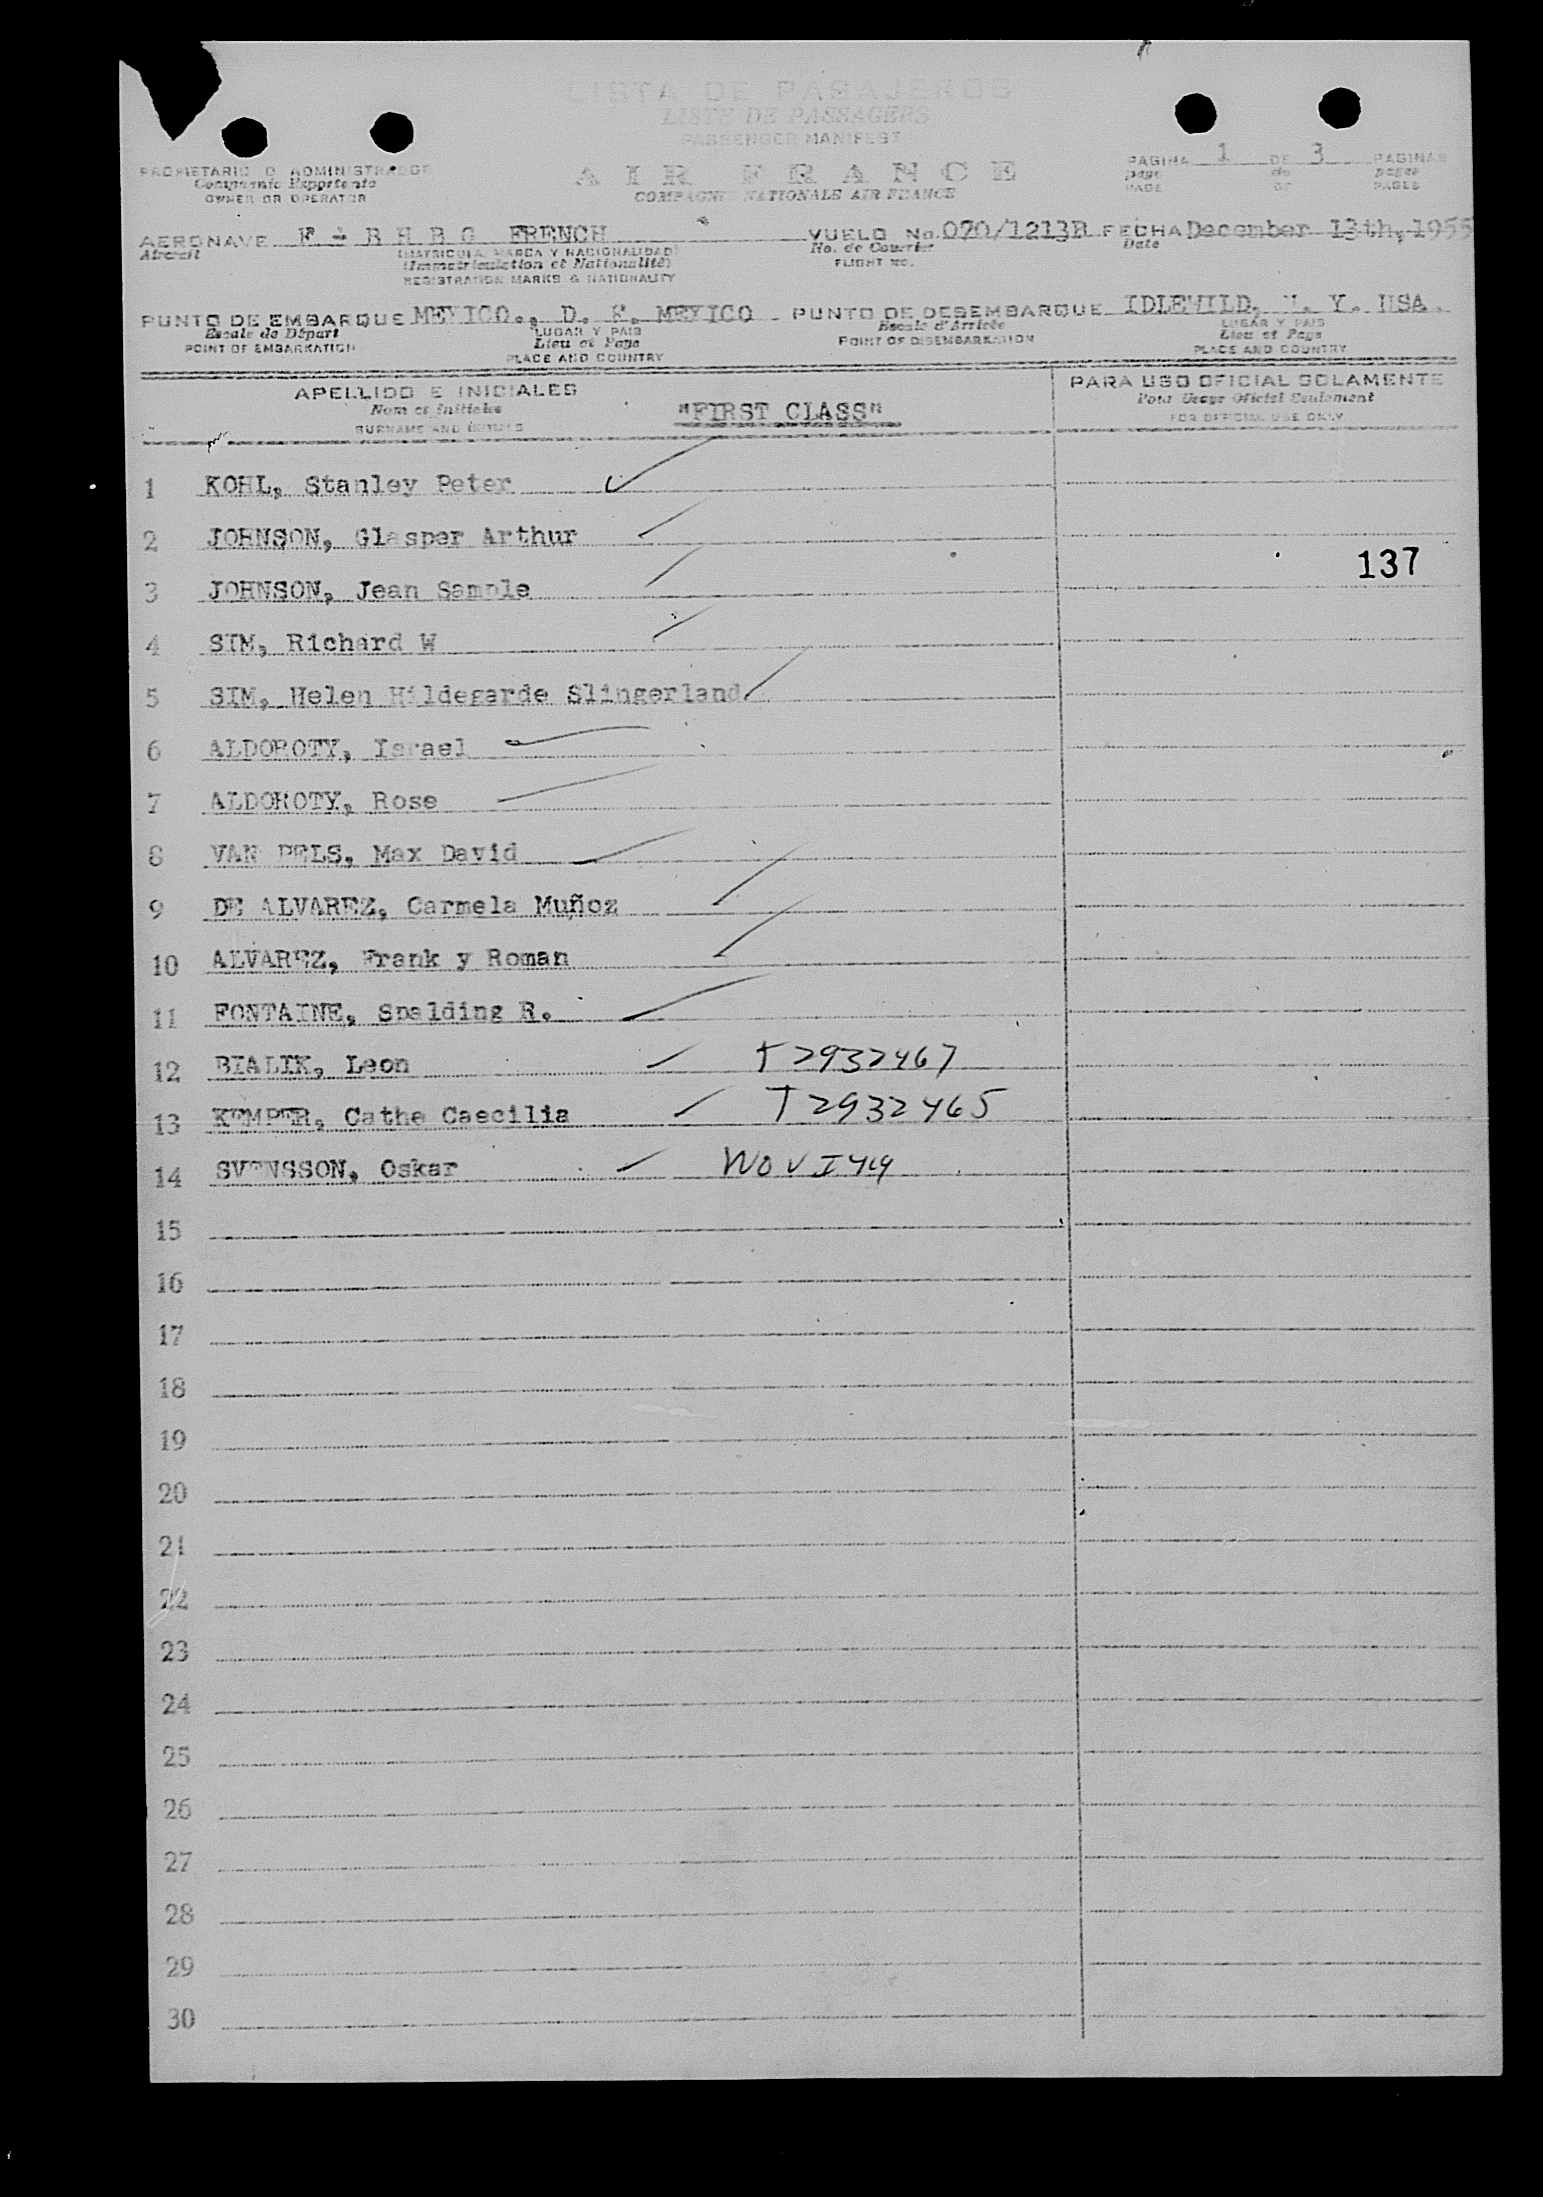 LISTA DE PASAJEROS
LISTE DE PASSAGERS
PASSENGER MANIFEST
PROPIETARIO O ADMINISTRADOR
Compagnie Exploitante
OWNER OR OPERATOR
AIR FRANCE
COMPAGNIE NATIONALE AIR FRANCE
PAGINA 1 DE 3 PAGINAS
page de pages
PAGE OF PAGES
AERONAVE F - B H B G FRENCH VUELO No. 070/1213B FECHA December 13th, 1955
Aircraft (MATRICULA, MARCA Y NACIONALIDAD) No. de Courrier Date
(Immatriculation et Nationalité) FLIGHT NO.
REGISTRATION MARKS & NATIONALITY
PUNTO DE EMBARQUE MEXICO., D. F. MEXICO PUNTO DE DESEMBARQUE IDLEWILD, N. Y. USA.
Escale de Départ LUGAR Y PAIS Escale d'Arrivée LUGAR Y PAIS
POINT OF EMBARKATION Lieu et Pays POINT OF DISEMBARKATION Lieu et Pays
PLACE AND COUNTRY PLACE AND COUNTRY
APELLIDO E INICIALES PARA USO OFICIAL SOLAMENTE
Nom et Initiales "FIRST CLASS" Pour Usage Officiel Seulement
SURNAME AND INITIALS FOR OFFICIAL USE ONLY
1 KOHL, Stanley Peter
2 JOHNSON, Glasper Arthur
137
3 JOHNSON, Jean Sample
4 SIM, Richard W
5 SIM, Helen Hildegarde Slingerland
6 ALDOROTY, Israel
7 ALDOROTY, Rose
8 VAN PELS, Max David
9 DE ALVAREZ, Carmela Muñoz
10 ALVAREZ, Frank y Roman
11 FONTAINE, Spalding R.
12 BIALIK, Leon T2932467
13 KEMPER, Cathe Caecilia T2932465
14 SVENSSON, Oskar
15
16
17
18
19
20
21
22
23
24
25
26
27
28
29
30